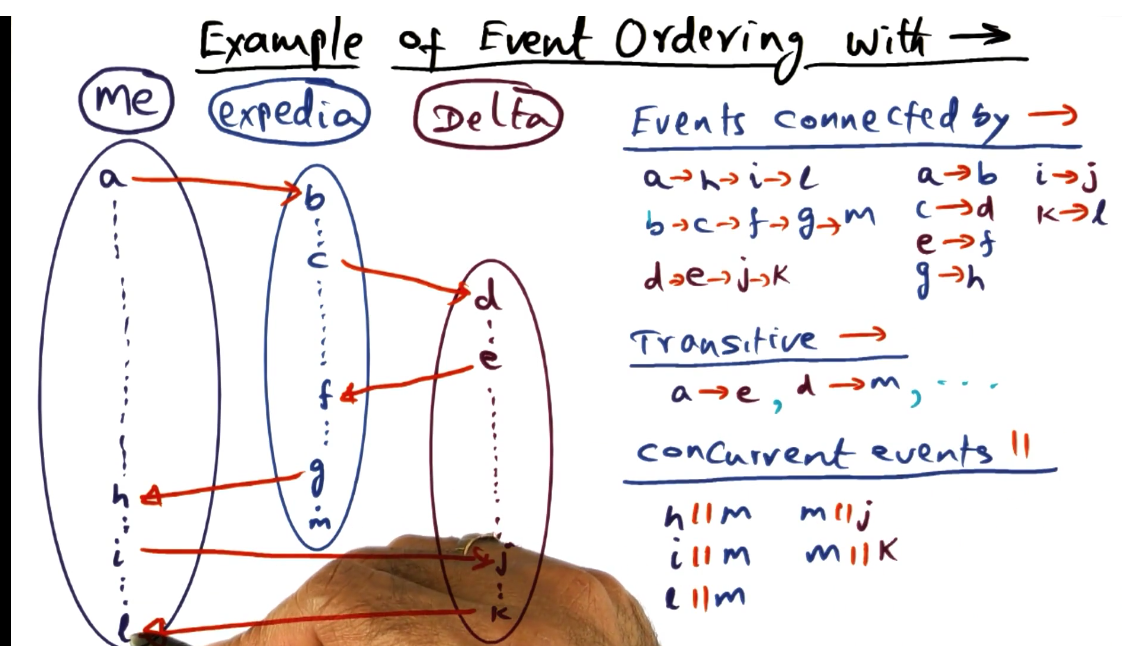 Example of Event Ordering with →
me expedia Delta
a
b
c
d
e
f
g
h
m
i
j
k
l
Events connected by →
a→h→i→l
b→c→f→g→m
d→e→j→k
a→b
c→d
e→f
g→h
i→j
k→l
Transitive →
a→e, d→m, ...
concurrent events ||
h||m
i||m
l||m
m||j
m||k